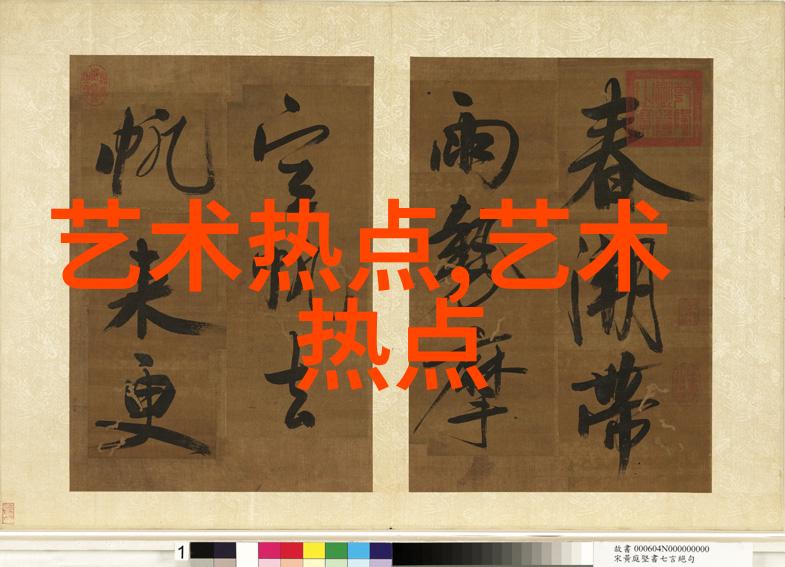 艺术热点,艺术
热点
春潮帶
雨摩
空去
帆来更
1
故書 000604N000000000
宋黃庭堅書七言絕句